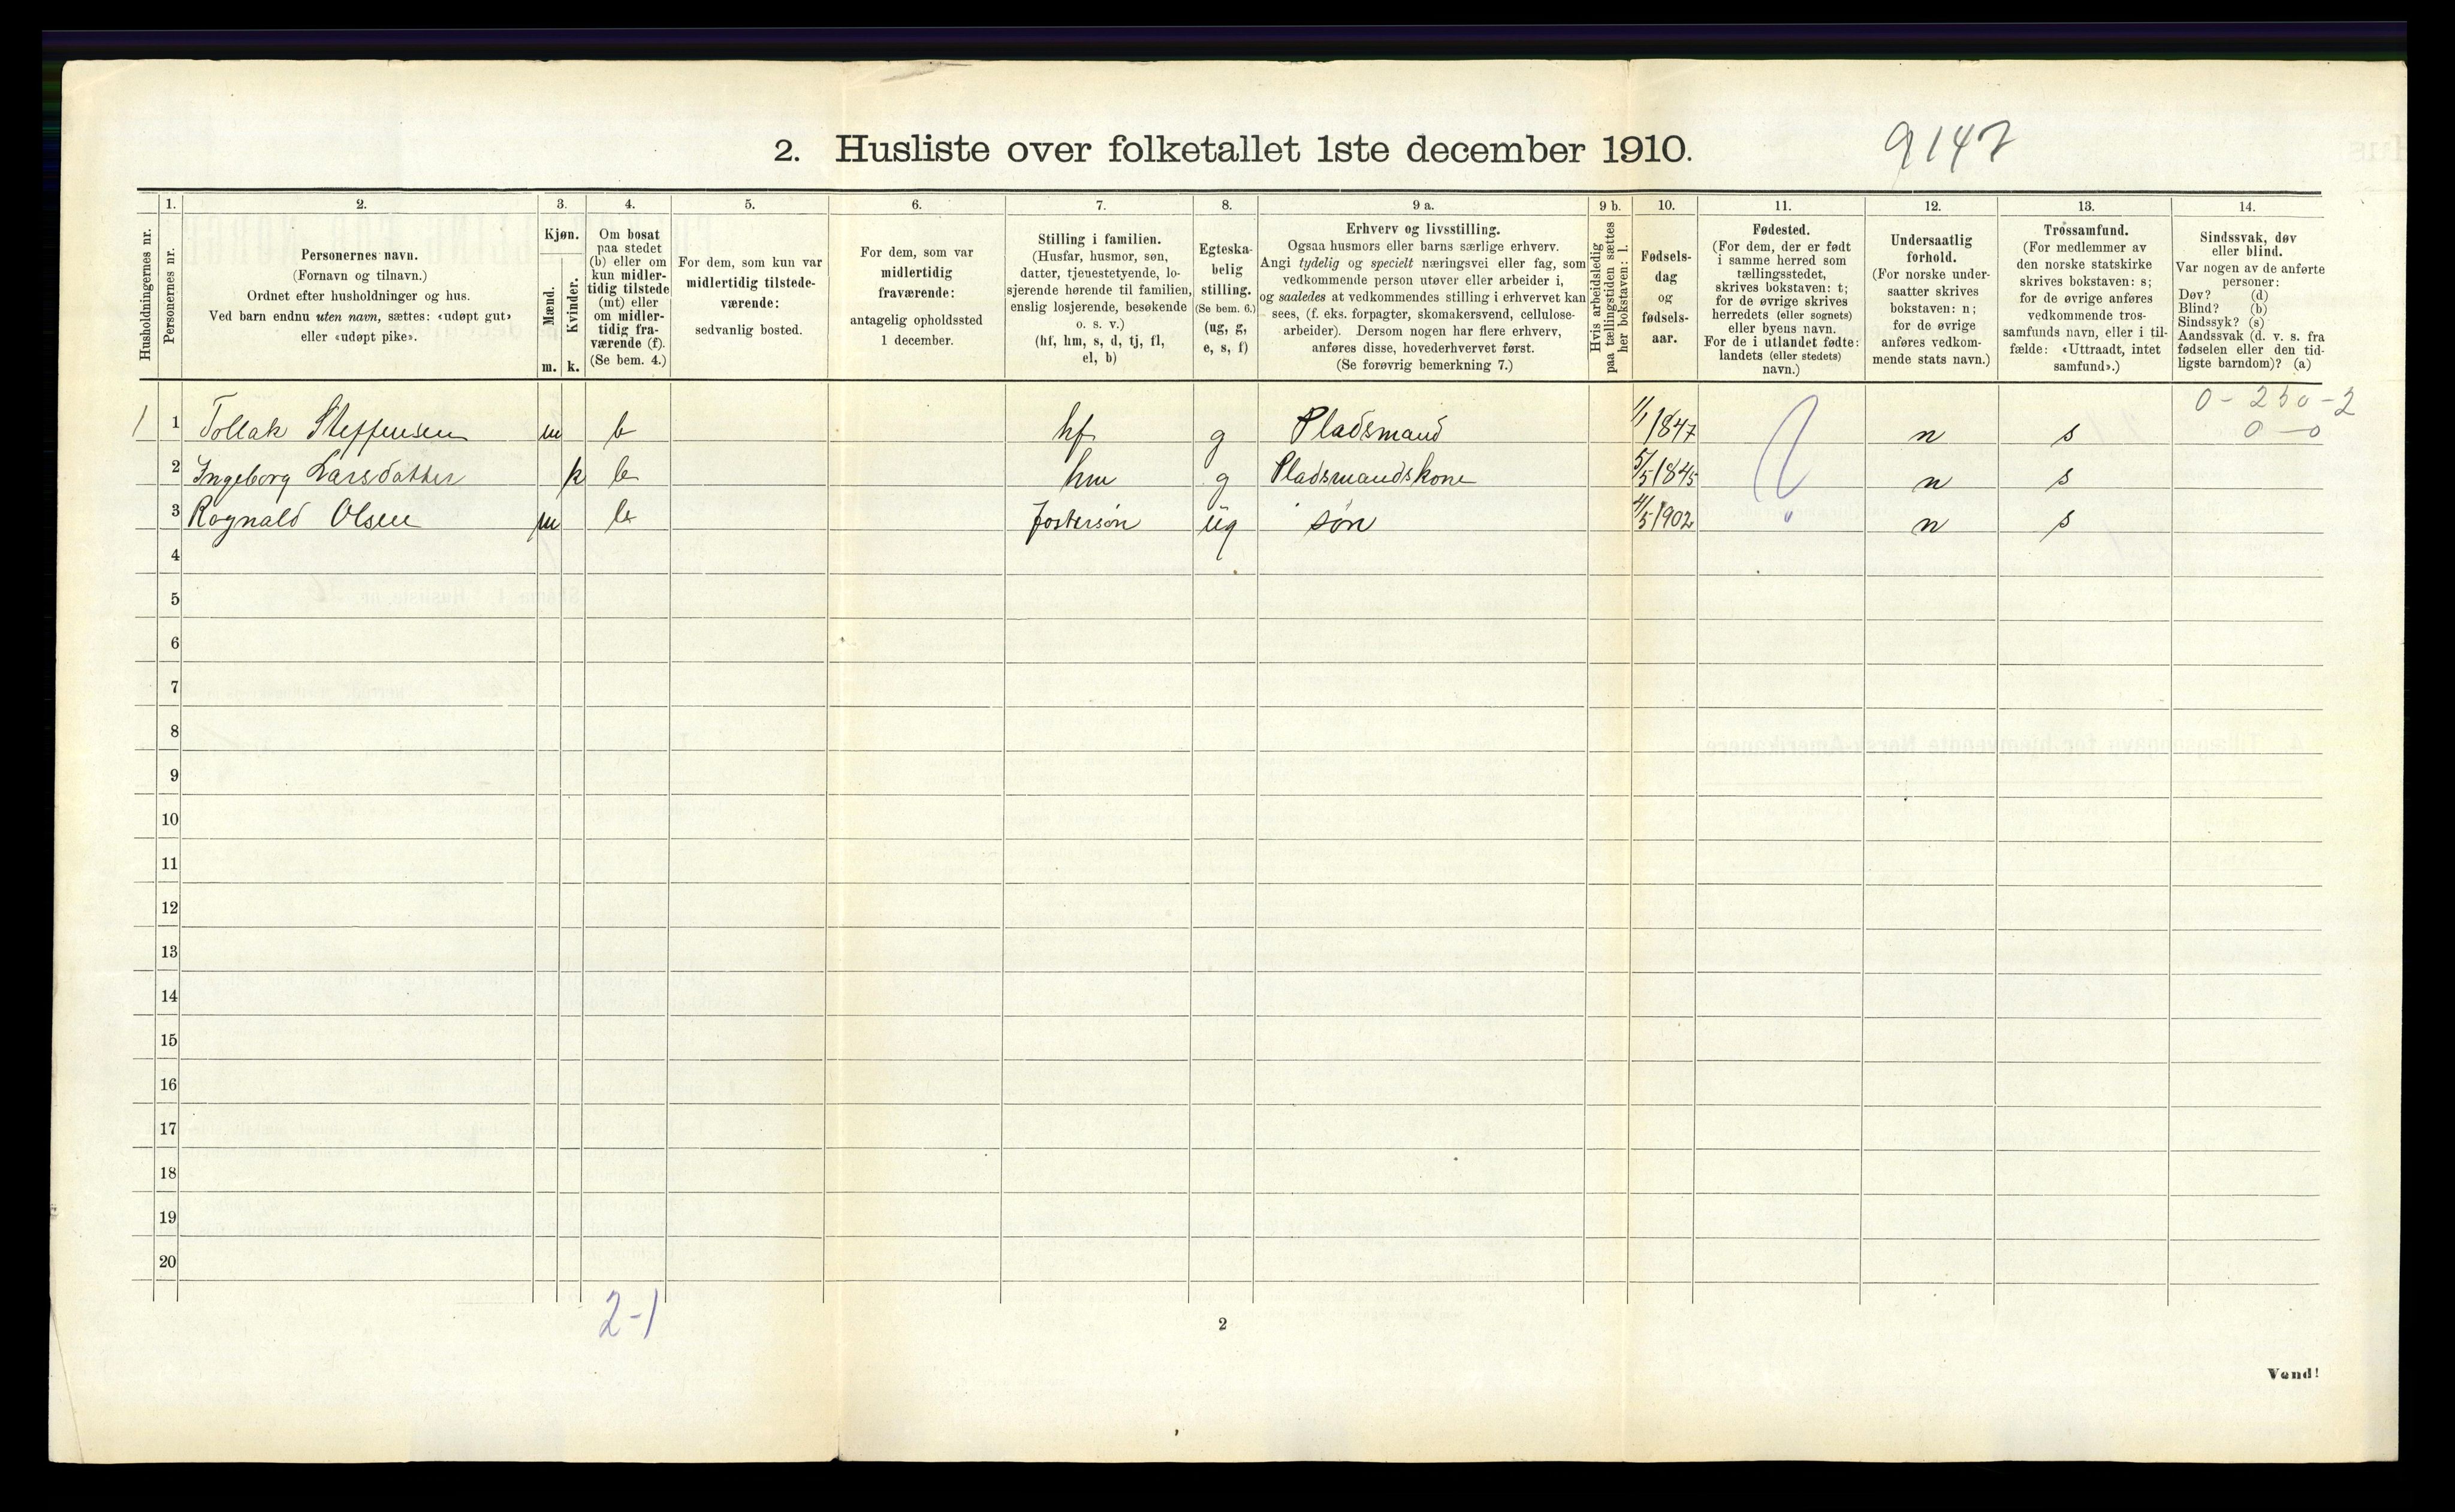 2. Husliste over folketallet 1ste december 1910.
9147
Husholdningernes nr.
1.
Personernes nr.
2.
Personernes navn.
(Fornavn og tilnavn.)
Ordnet efter husholdninger og hus.
Ved barn endnu uten navn, sættes: «udøpt gut»
eller «udøpt pike».
3.
Kjøn.
Mænd.
Kvinder.
m. k.
4.
Om bosat
paa stedet
(b) eller om
kun midler-
tidig tilstede
(mt) eller
om midler-
tidig fra-
værende (f).
(Se bem. 4.)
5.
For dem, som kun var
midlertidig tilstede-
værende:
sedvanlig bosted.
6.
For dem, som var
midlertidig
fraværende:
antagelig opholdssted
1 december.
7.
Stilling i familien.
(Husfar, husmor, søn,
datter, tjenestetyende, lo-
sjerende hørende til familien,
enslig losjerende, besøkende
o. s. v.)
(hf, hm, s, d, tj, fl,
el, b)
8.
Egteska-
belig
stilling.
(Se bem. 6.)
(ug, g,
e, s, f)
9 a.
Erhverv og livsstilling.
Ogsaa husmors eller barns særlige erhverv.
Angi tydelig og specielt næringsvei eller fag, som
vedkommende person utøver eller arbeider i,
og saaledes at vedkommendes stilling i erhvervet kan
sees, (f. eks. forpagter, skomakersvend, cellulose-
arbeider). Dersom nogen har flere erhverv,
anføres disse, hovederhvervet først.
(Se forøvrig bemerkning 7.)
9 b.
Hvis arbeidsledig
paa tællingstiden sættes
her bokstaven: l.
10.
Fødsels-
dag
og
fødsels-
aar.
11.
Fødested.
(For dem, der er født
i samme herred som
tællingsstedet,
skrives bokstaven: t;
for de øvrige skrives
herredets (eller sognets)
eller byens navn.
For de i utlandet fødte:
landets (eller stedets)
navn.)
12.
Undersaatlig
forhold.
(For norske under-
saatter skrives
bokstaven: n;
for de øvrige
anføres vedkom-
mende stats navn.)
13.
Trossamfund.
(For medlemmer av
den norske statskirke
skrives bokstaven: s;
for de øvrige anføres
vedkommende tros-
samfunds navn, eller i til-
fælde: «Uttraadt, intet
samfund».)
14.
Sindssvak, døv
eller blind.
Var nogen av de anførte
personer:
Døv? (d)
Blind? (b)
Sindssyk? (s)
Aandssvak (d. v. s. fra
fødselen eller den tid-
ligste barndom)? (a)
0 - 250 - 2
0 - 0
1 1 Tollak Steffensen m b hf g Pladsmand 1/1 1847 n s
2 Ingeborg Larsdatter k b hm g Pladsmandskone 5/5 1845 n s
3 Rognald Olsen m b fostersön ug sön 4/5 1902 " n s
4
5
6
7
8
9
10
11
12
13
14
15
16
17
18
19
20
2-1
2
Vend!